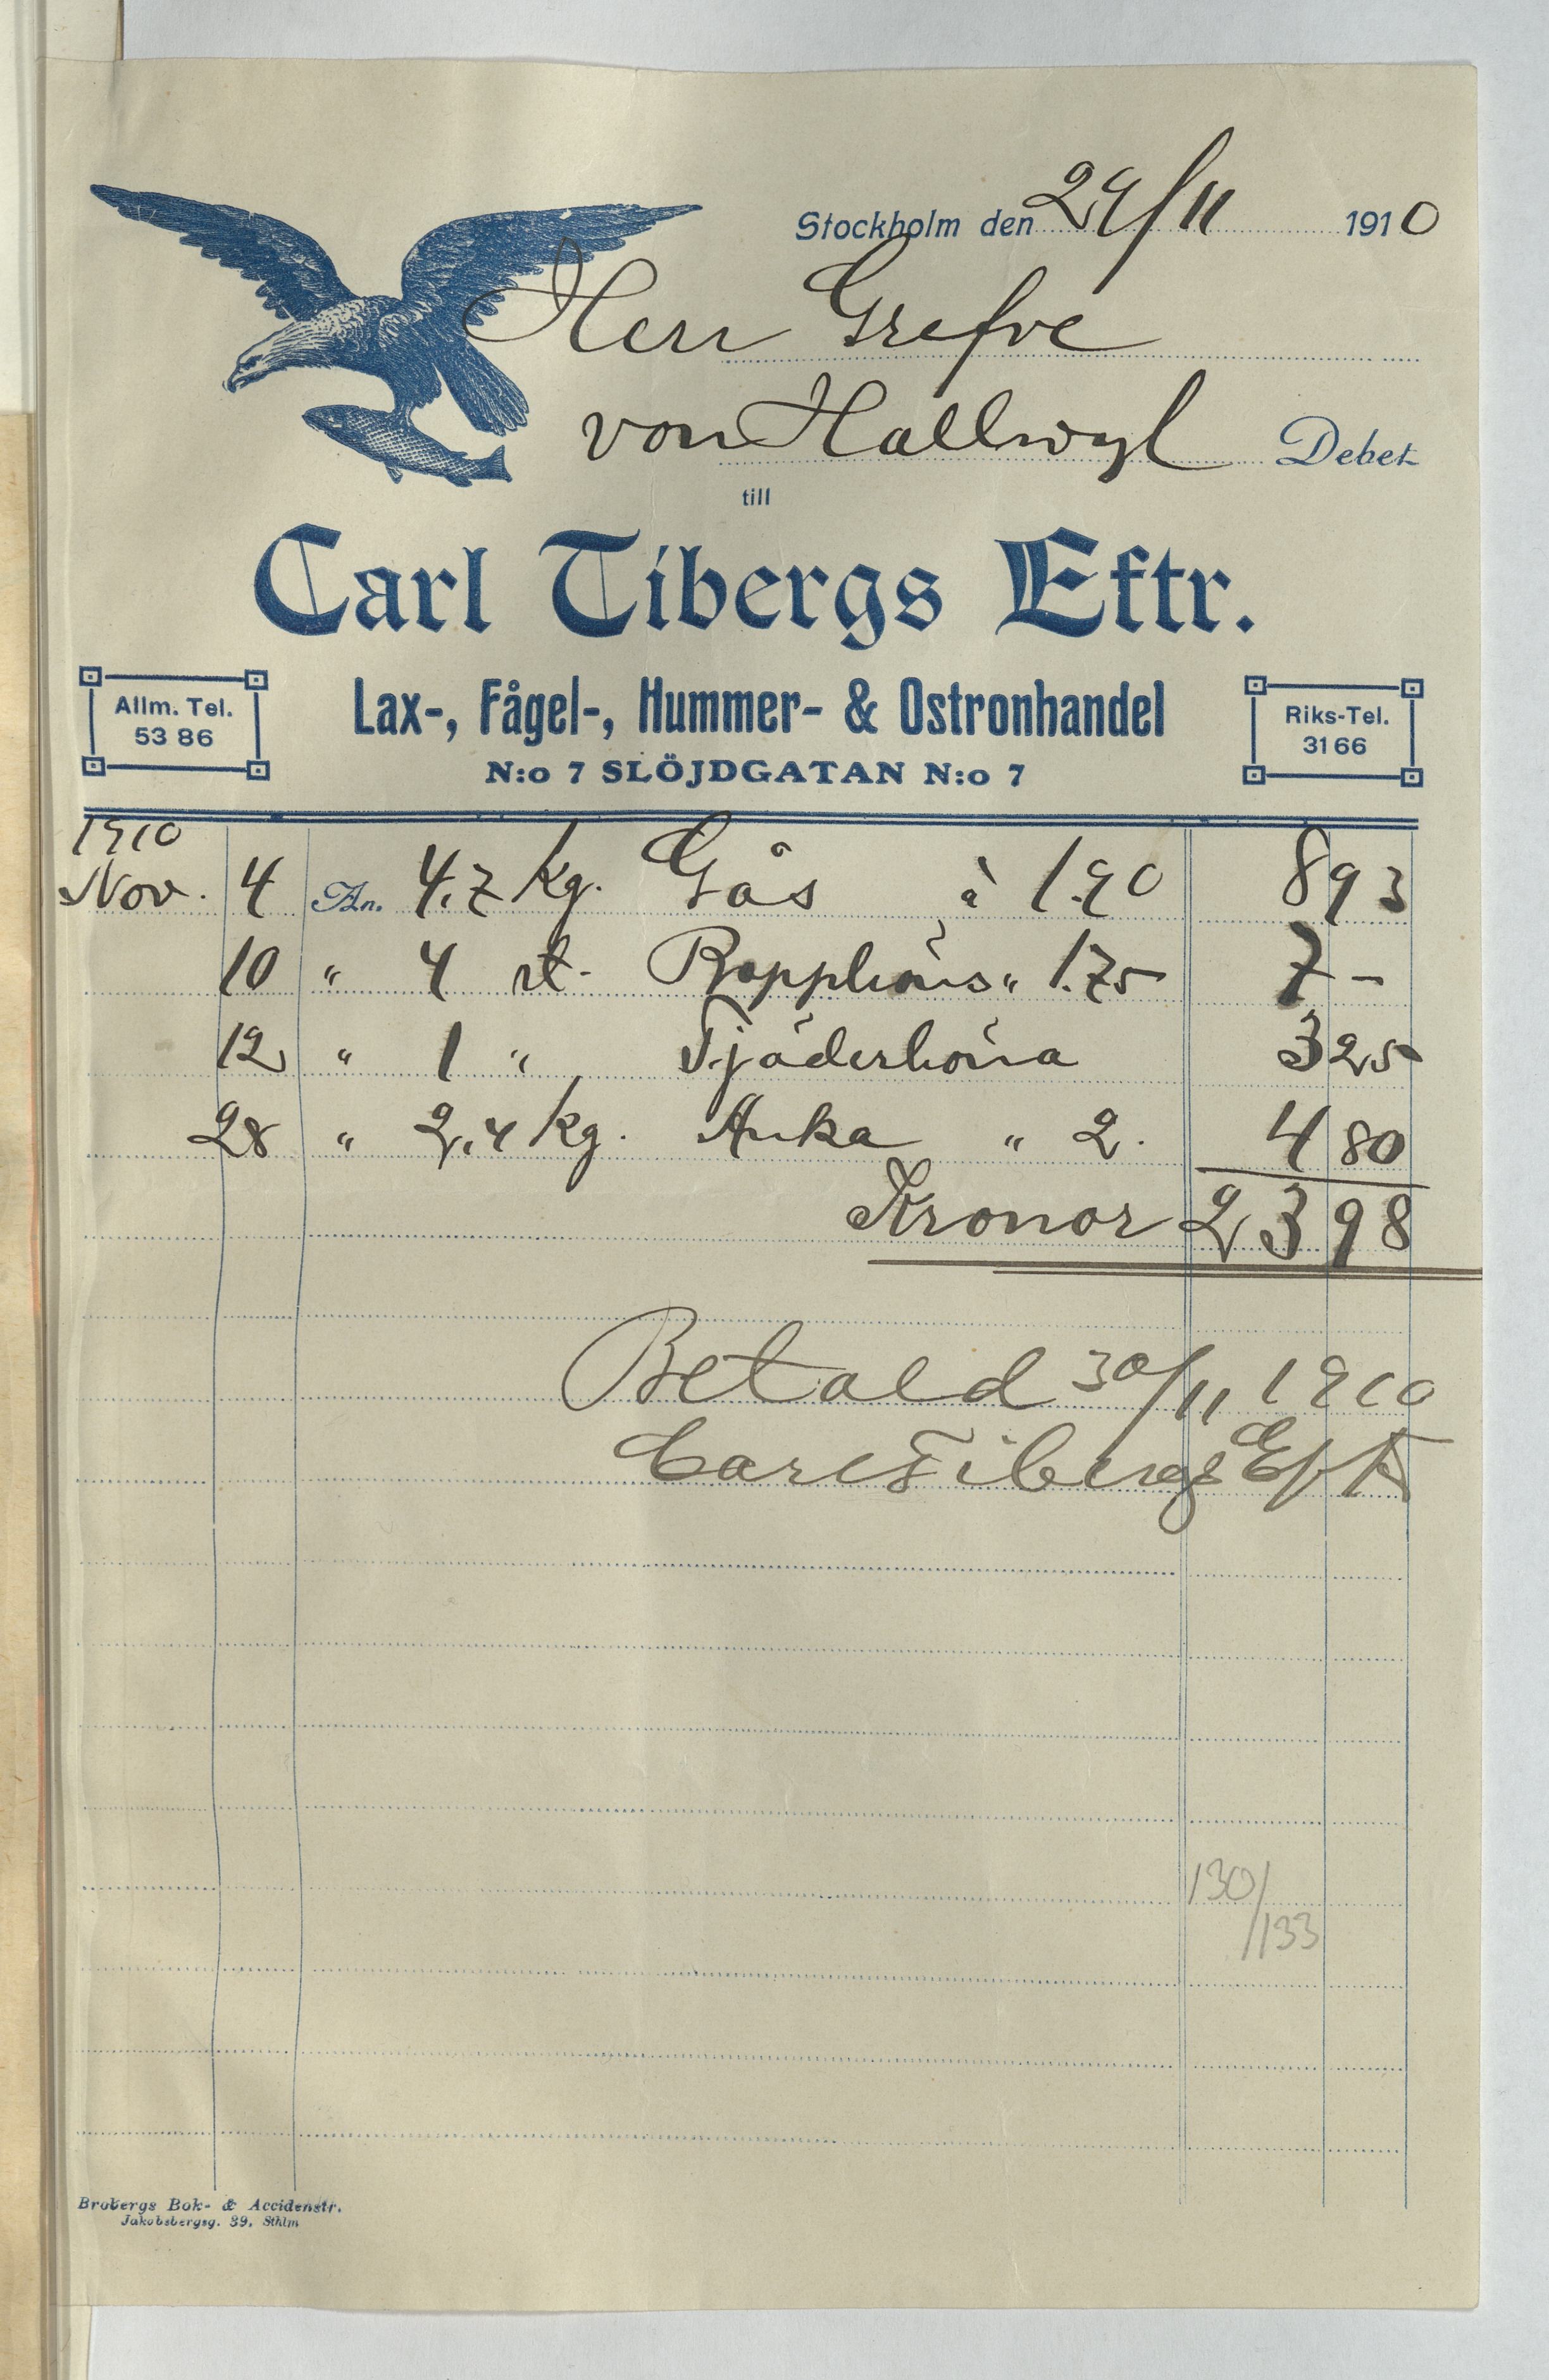 Stockholm den 29/11 1910
Herr Grefve
von Hallwyl Debet
till
Carl Tibergs Eftr.
Allm. Tel.
53 86
Lax-, Fågel-, Hummer- & Ostronhandel
N:o 7 SLÖJDGATAN N:o 7
Riks-Tel.
3166
1910
Nov. 4 An. 4.7 kg. Gås à 1.90 8 93
10 " 4 st. Rapphöns " 1.75 7 -
12 " 1 " Tjäderhöna 3 25
28 " 2,4 kg. Anka " 2. 4 80
Kronor 23 98
Betald 30/11 1910
Carl Tibergs Eftr
130/
/133
Brobergs Bok- & Accidenstr.
Jakobsbergsg. 39, Sthlm